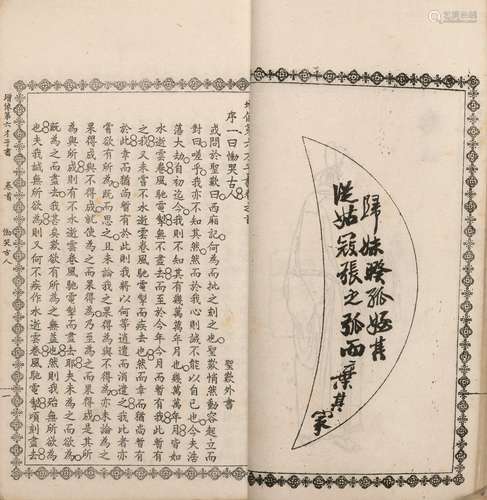 歸妹睽孤
從姑寇張之弧而棄其家
增像第六才子書卷之首
序一曰慟哭古人 聖歎外書
或問於聖歎曰西廂記何為而批之刻之也聖歎悄然動容起立而
對曰嗟乎我亦不知其然然而於我心則誠不能以自已也今夫浩
蕩大劫自初迄今我則不知其有幾萬萬年月也幾萬萬年月皆如
水逝雲卷風馳電掣無不盡去而至於今年今月而暫有我此暫有
之我又未嘗不水逝雲卷風馳電掣而疾去也然而幸而猶尚暫有
於此幸而猶尚暫有於此則我將以何等消遣而消遣之我比者亦
嘗欲有所為既而思之且未論我之果得為與不得為亦未論為之
果得成與不得成就使為之而果得為乃至為之而果得成是其所
為與所成則有不水逝雲卷風馳電掣而盡去耶夫未為之而欲為
既為之而盡去我甚矣歎欲有所為之無益也然則我殆無所欲為
也夫我誠無所欲為則又何不疾作水逝雲卷風馳電掣頃刻盡去
增像第六才子書 卷首 慟哭古人